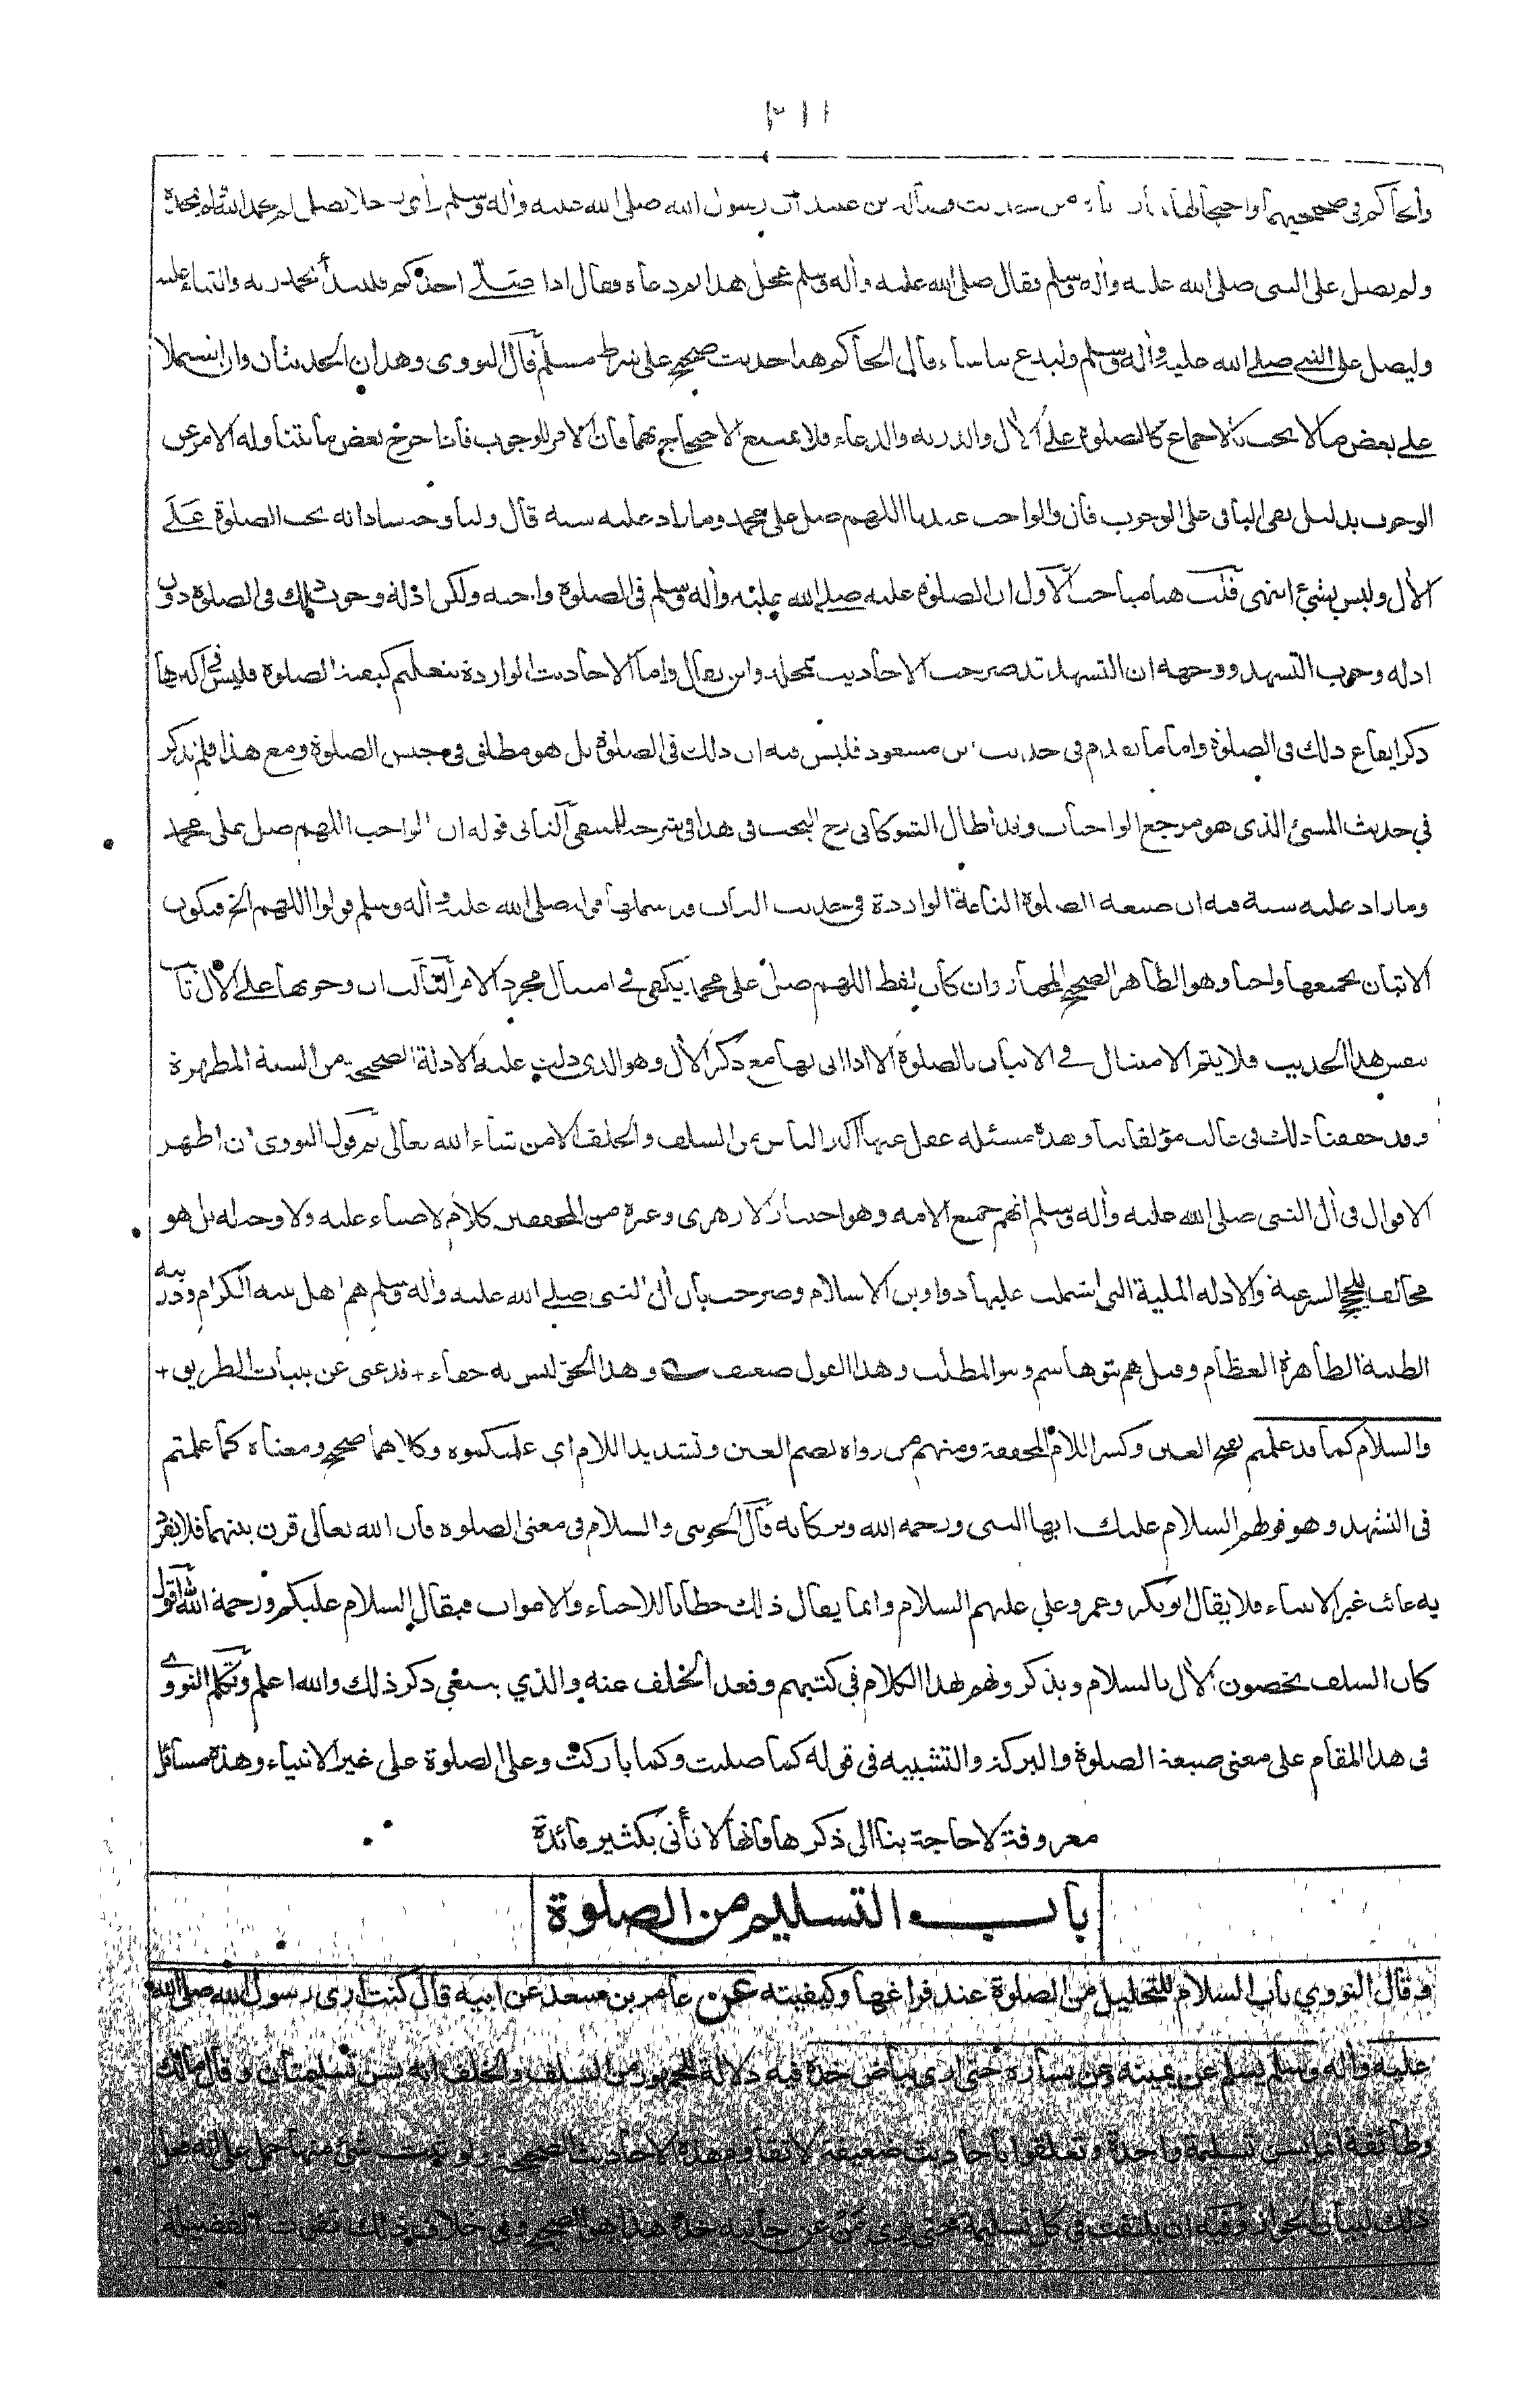 ٣١١
والحاكم فى صحيحيهما واحتجا لها بما رواه من حديث فضالة بن عبيد ان رسول الله صلى الله عليه وأله وسلم رأى رجلا يصلى لم يحمد الله ولم يمجده
ولم يصل على النبى صلى الله عليه وأله وسلم فقال صلى الله عليه وأله وسلم عجل هذا ثم دعاه فقال اذا صلى احدكم فليبدأ بحمد ربه والثناء عليه
وليصل على النبى صلى الله عليه وأله وسلم وليدع ما شاء قال الحاكم هذا حديث صحيح على شرط مسلم قال النووى وهذان الحديثان وان اشتملا
على بعض ما لا يجب بالاجماع كالصلوة على الأل والذرية والدعاء فلا يمتنع الاحتجاج بهما فان الامر للوجوب فاذا خرج بعض ما يتناوله الامر عن
الوجوب بدليل بقى الباقى على الوجوب قال والواجب عندنا اللهم صل على محمد وما زاد عليه سنة قال ولنا وجه شاذ انه يجب الصلوة على
الأل وليس بشئ انتهى قلت هنا مباحث الاول ان الصلوة عليه صلى الله عليه وأله وسلم فى الصلوة واجبة ولكن ادلة وجوب تلك فى الصلوة دون
ادلة وجوب التشهد ووجهه ان التشهد قد صرحت الاحاديث بمحله واين يقال واما الاحاديث الواردة بتعليم كيفية الصلوة فليس فى اكثرها
ذكر ايقاع ذلك فى الصلوة واما ما تقدم فى حديث ابن مسعود فليس فيه ان ذلك فى الصلوة بل هو مطلق فى جنس الصلوة ومع هذا فلم يذكر
فى حديث المسئ الذى هو مرجع الواجبات وقد اطال الشوكانى رح البحث فى هذا فى شرحه للمنتقى الثانى قوله ان الواجب اللهم صل على محمد
وما زاد عليه سنة فيه ان صيغة الصلوة التامة الواردة فى حديث الباب قوله صلى الله عليه وأله وسلم قولوا اللهم الخ فيكون
الاتيان بجميعها واجبا وهو الظاهر الصحيح المختار وان كان لفظ اللهم صل على محمد يكفى فى امتثال مجرد الامر الثالث ان وجوبها على الأل ثابت
بنفس هذا الحديث فلا يتم الامتثال فى الاتيان بالصلوة الا اذا اتى بها مع ذكر الأل وهو الذى دلت عليه الادلة الصحيحة من السنة المطهرة
وقد حققنا ذلك فى غالب مؤلفاتنا وهذه مسئلة غفل عنها اكثر الناس من السلف والخلف الا من شاء الله تعالى ثم قول النووى ان اظهر
الاقوال فى أل النبى صلى الله عليه وأله وسلم انهم جميع الامة وهو اختيار الازهرى وغيره من المحققين كلام لا ضياء عليه ولا وجه له بل هو
مخالف للحجج الشرعية والادلة الملية التى اشتملت عليها دواوين الاسلام وصرحت بأن أل النبى صلى الله عليه وأله وسلم هم اهل بيته الكرام وذريته
الطيبة الطاهرة العظام وقيل هم بنو هاشم وبنو المطلب وهذا القول ضعيف وهذا الحق ليس به خفاء + فدعنى عن بنيات الطريق +
والسلام كما قد علمتم بفتح العين وكسر اللام المخففة ومنهم من رواه بضم العين وتشديد اللام اى علمتكموه وكلاهما صحيح ومعناه كما علمتم
فى التشهد وهو قولهم السلام عليك ايها النبى ورحمة الله وبركاته قال الجوينى والسلام فى معنى الصلوة فان الله تعالى قرن بينهما فلا يفرد
به غائب غير الانبياء فلا يقال ابو بكر وعمر وعلى عليهم السلام وانما يقال ذلك خطابا للاحياء والاموات فيقال السلام عليكم ورحمة الله اقول
كان السلف يخصون الأل بالسلام ويذكرونهم بهذا الكلام فى كتبهم وقعد الخلف عنه والذي ينبغى ذكر ذلك والله اعلم وتكلم النووى
فى هذا المقام على معنى صيغة الصلوة والبركة والتشبيه فى قوله كما صليت وكما باركت وعلى الصلوة على غير الانبياء وهذه مسائل
معروفة لا حاجة بنا الى ذكرها فانها لا تأتى بكثير فائدة
باب التسليم من الصلوة
وقال النووي باب السلام للتحليل من الصلوة عند فراغها وكيفيته عن عامر بن سعد عن ابيه قال كنت ارى رسول الله صلى الله
عليه وأله وسلم يسلم عن يمينه وعن يساره حتى ارى بياض خده فيه دلالة للجمهور من السلف والخلف انه يسن تسليمتان وقال مالك
وطائفة انما يسن تسليمة واحدة وتعلقوا باحاديث ضعيفة لا تقاوم هذه الاحاديث الصحيحة ولو ثبت شئ منها حمل على انه فعل
ذلك لبيان الجواز وفيه ان يلتفت فى كل تسليمة حتى يرى من عن جانبه خده هذا هو الصحيح وفى خلاف ذلك تفوت الفضيلة